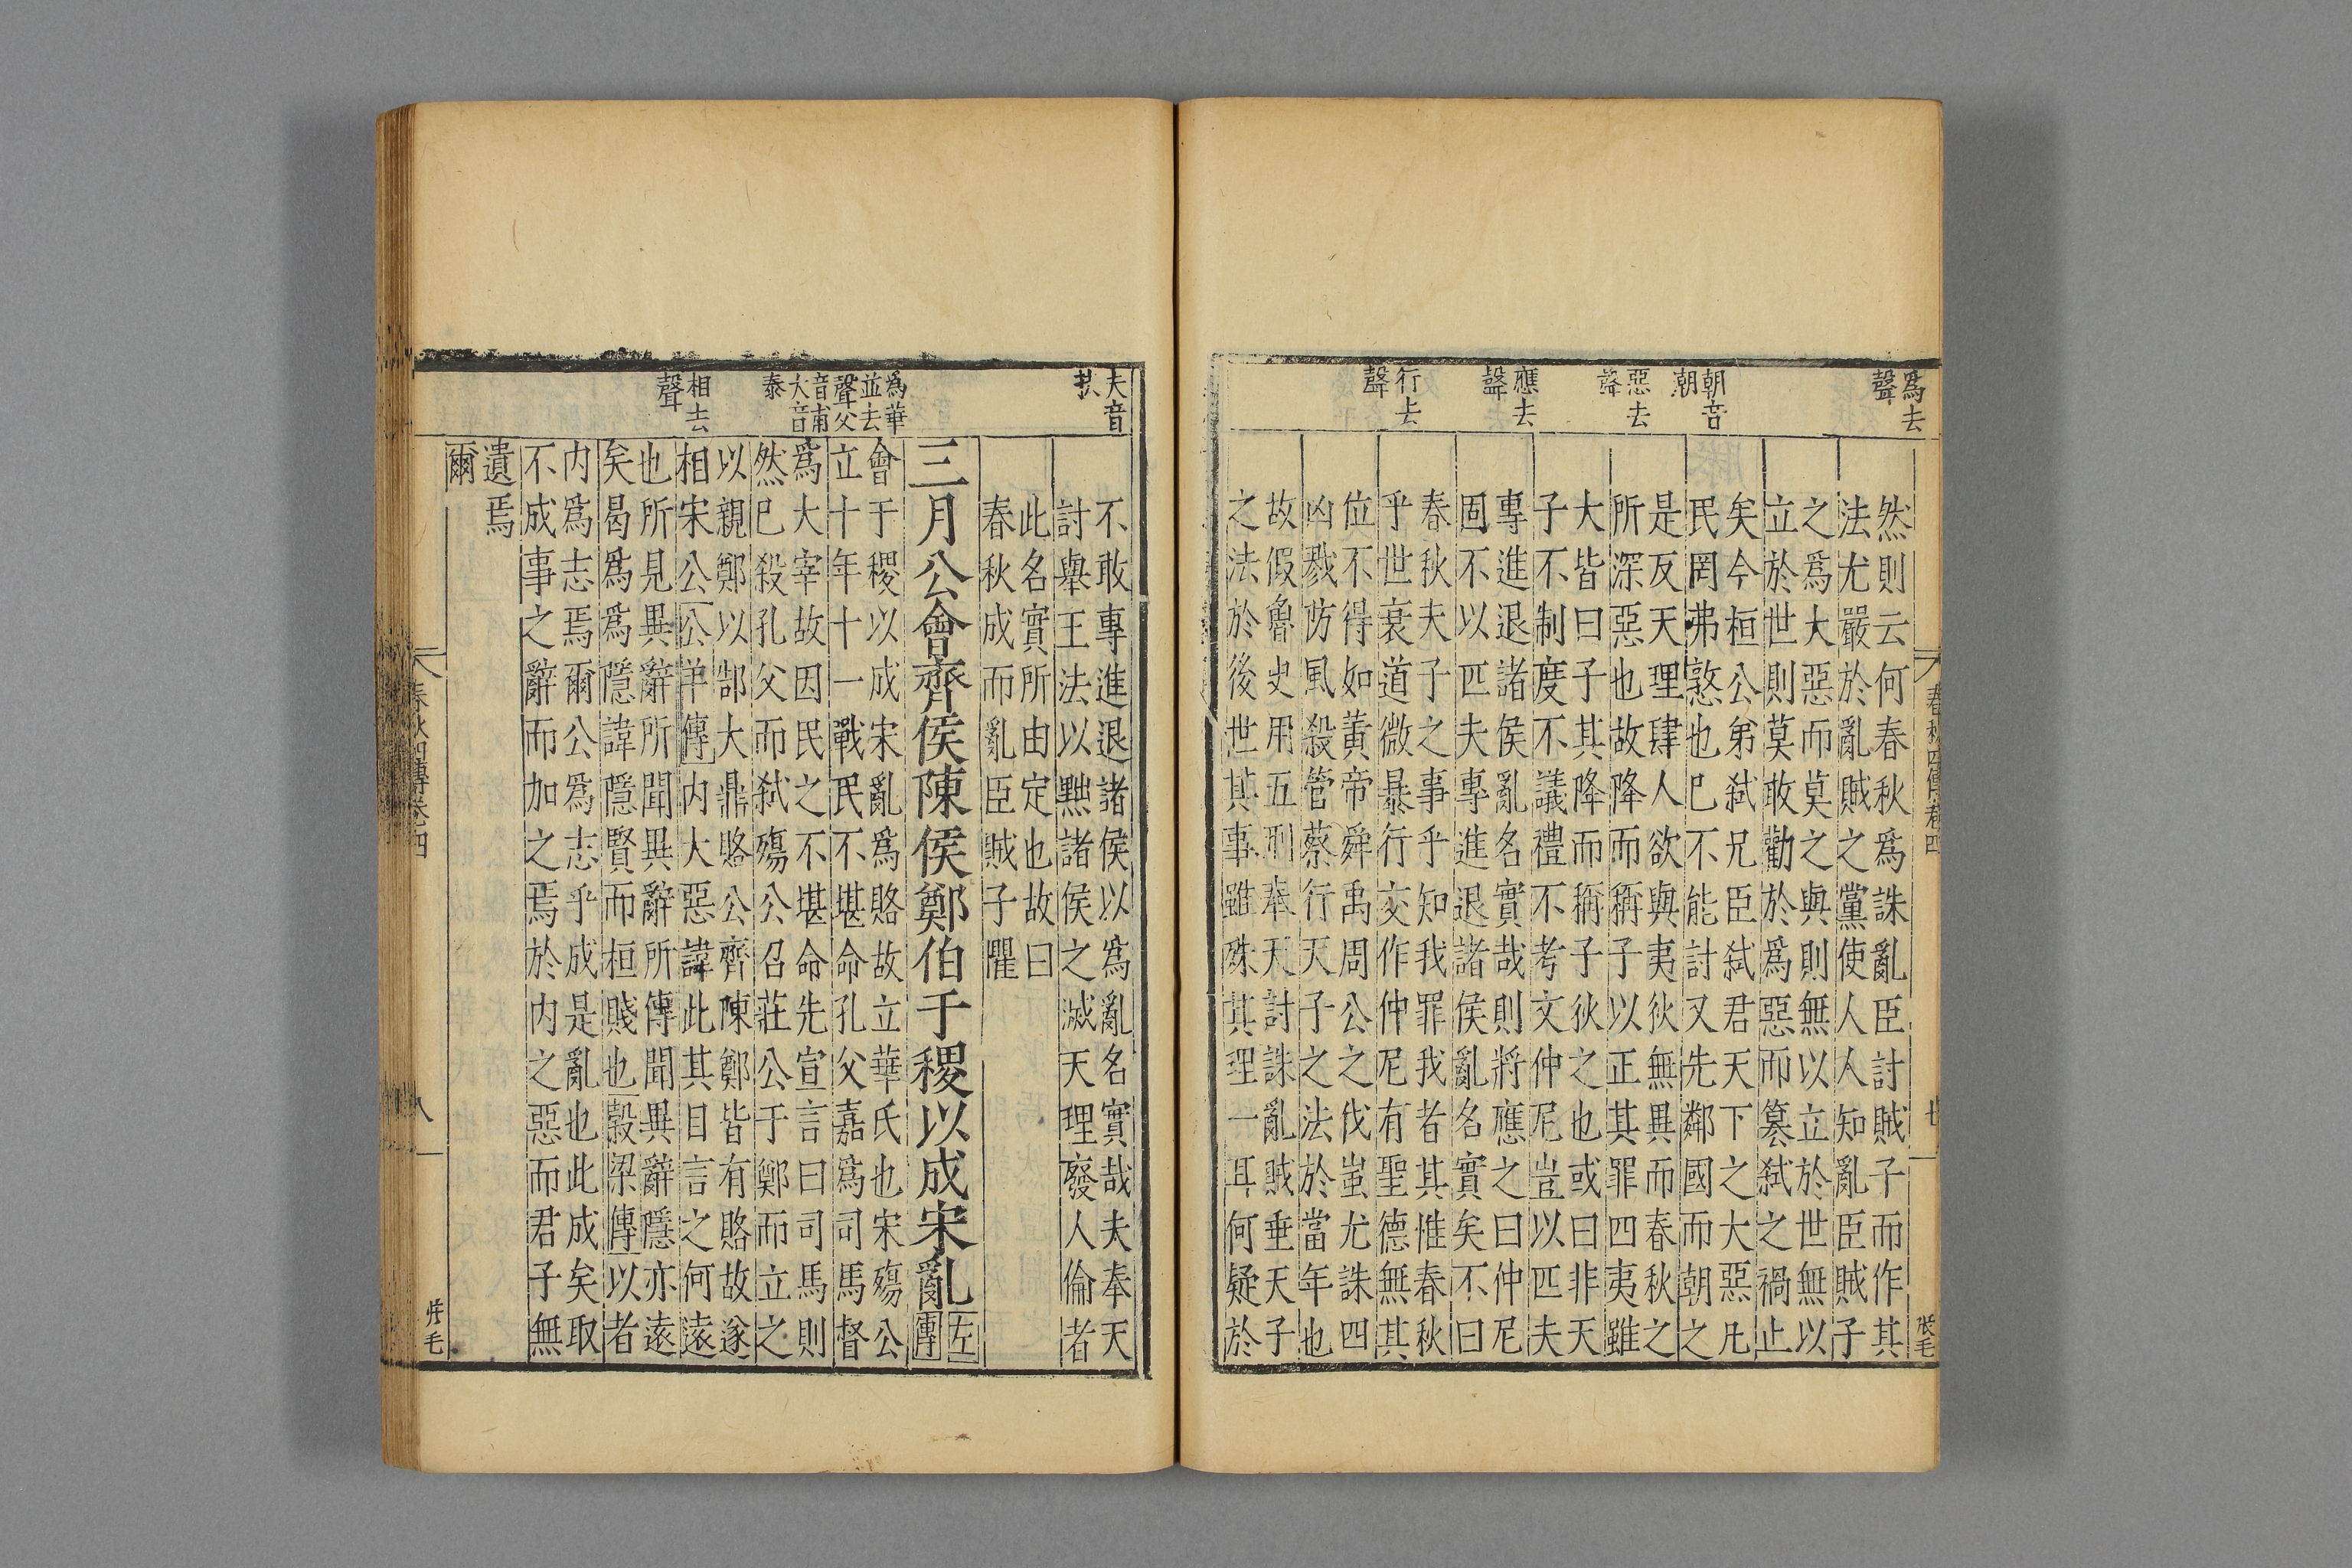 爲去
聲
朝音
潮
惡去
聲
應去
聲
行去
聲
春秋四傳卷四
七
然則云何春秋爲誅亂臣討賊子而作其
法尤嚴於亂賊之黨使人人知亂臣賊子
之爲大惡而莫之與則無以立於世無以
立於世則莫敢勸於爲惡而篡弑之禍止
矣今桓公弟弑兄臣弑君天下之大惡凡
民罔弗憝也已不能討又先鄰國而朝之
是反天理肆人欲與夷狄無異而春秋之
所深惡也故降而稱子以正其罪四夷雖
大皆曰子其降而稱子狄之也或曰非天
子不制度不議禮不考文仲尼豈以匹夫
專進退諸侯亂名實哉則將應之曰仲尼
固不以匹夫專進退諸侯亂名實矣不曰
春秋夫子之事乎知我罪我者其惟春秋
乎世衰道微暴行交作仲尼有聖德無其
位不得如黃帝舜禹周公之伐蚩尤誅四
凶戮防風殺管蔡行天子之法於當年也
故假魯史用五刑奉天討誅亂賊垂天子
之法於後世其事雖殊其理一耳何疑於
夫音
扶
爲華
並去
聲父
音甫
大音
泰
相去
聲
不敢專進退諸侯以爲亂名實哉夫奉天
討舉王法以黜諸侯之滅天理廢人倫者
此名實所由定也故曰
春秋成而亂臣賊子懼
三月公會齊侯陳侯鄭伯于稷以成宋亂左
傳
會于稷以成宋亂爲賂故立華氏也宋殤公
立十年十一戰民不堪命孔父嘉爲司馬督
爲大宰故因民之不堪命先宣言曰司馬則
然已殺孔父而弑殤公召莊公于鄭而立之
以親鄭以郜大鼎賂公齊陳鄭皆有賂故遂
相宋公公羊傳内大惡諱此其目言之何遠
也所見異辭所聞異辭所傳聞異辭隱亦遠
矣曷爲爲隱諱隱賢而桓賤也穀梁傳以者
内爲志焉爾公爲志乎成是亂也此成矣取
不成事之辭而加之焉於内之惡而君子無
遺焉
爾
春秋四傳卷四
八